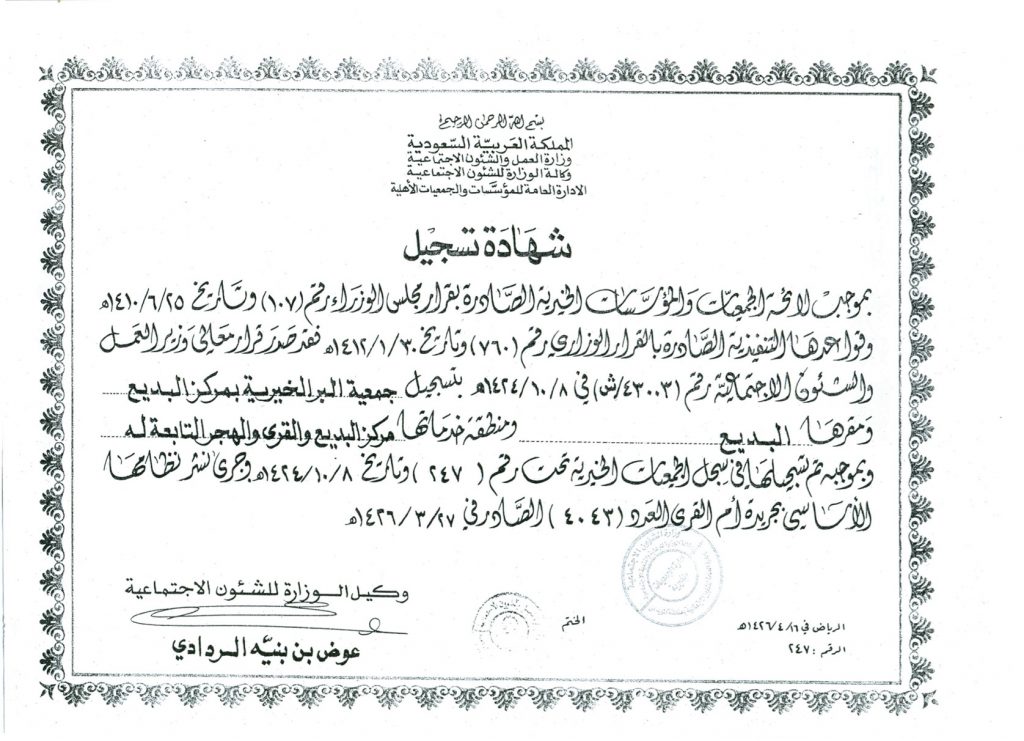 بسم الله الرحمن الرحيم
المملكة العربية السعودية
وزارة العمل والشئون الاجتماعية
وكالة الوزارة للشئون الاجتماعية
الادارة العامة للمؤسسات والجمعيات الأهلية
شهادة تسجيل
بموجب لائحة الجمعيات والمؤسسات الخيرية الصادرة بقرار مجلس الوزراء رقم (١٠٧) وتاريخ ١٤١٠/٦/٢٥هـ
وقواعدها التنفيذية الصادرة بالقرار الوزاري رقم (٧٦٠) وتاريخ ١٤١٢/١/٣٠هـ فقد صدر قرار معالي وزير العمل
والشئون الاجتماعية رقم (٤٣٠٠٣/ش) في ١٤٢٤/١٠/٨هـ بتسجيل جمعية البر الخيرية بمركز البديع
ومقرها البديع ومنطقة خدماتها مركز البديع والقرى والهجر التابعة له
وبموجبه تم تسجيلها في سجل الجمعيات الخيرية تحت رقم ( ٢٤٧ ) وتاريخ ١٤٢٤/١٠/٨هـ وجرى نشر نظامها
الأساسي بجريدة أم القرى العدد ( ٤٠٤٣ ) الصادر في ١٤٢٦/٣/٢٧هـ
وكيل الوزارة للشئون الاجتماعية
عوض بن بنيه الردادي
الختم
الرياض في ١٤٢٦/٤/١٦هـ
الرقم : ٢٤٧